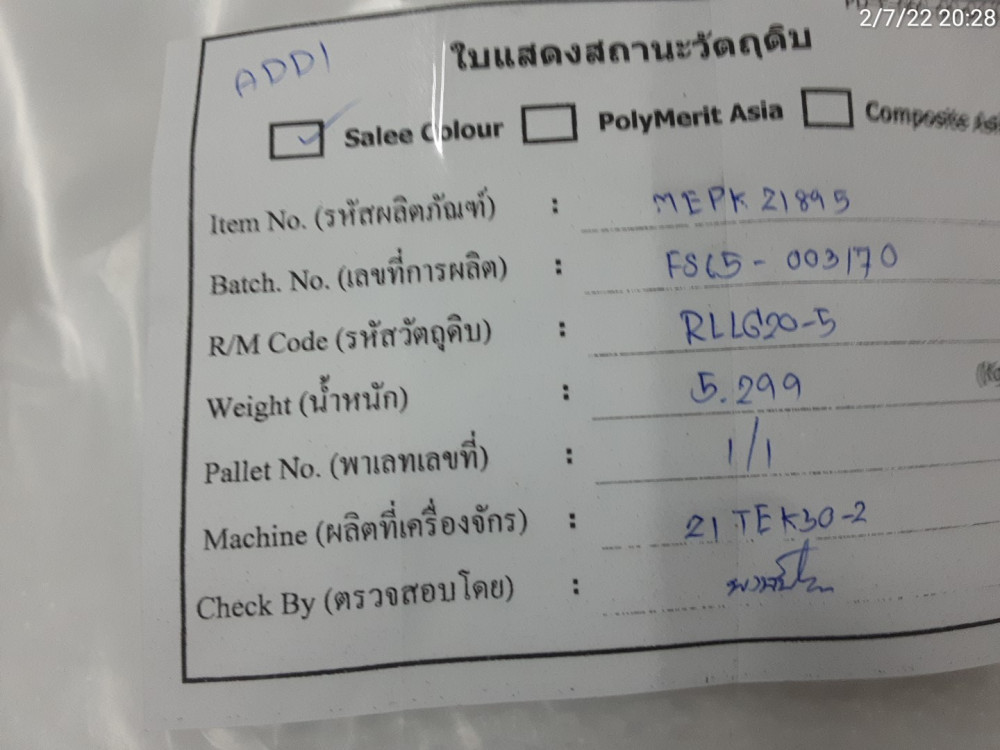 2/7/22 20:28
ADD1
ใบแสดงสถานะวัตถุดิบ
Salee Colour PolyMerit Asia Composite Asi
Item No. (รหัสผลิตภัณฑ์) : MEPK 21895
Batch. No. (เลขที่การผลิต) : FS65-003170
R/M Code (รหัสวัตถุดิบ) : RLLG20-5
Weight (น้ำหนัก) : 5.299
Pallet No. (พาเลทเลขที่) : 1/1
Machine (ผลิตที่เครื่องจักร) : 21 TEK30-2
Check By (ตรวจสอบโดย) :